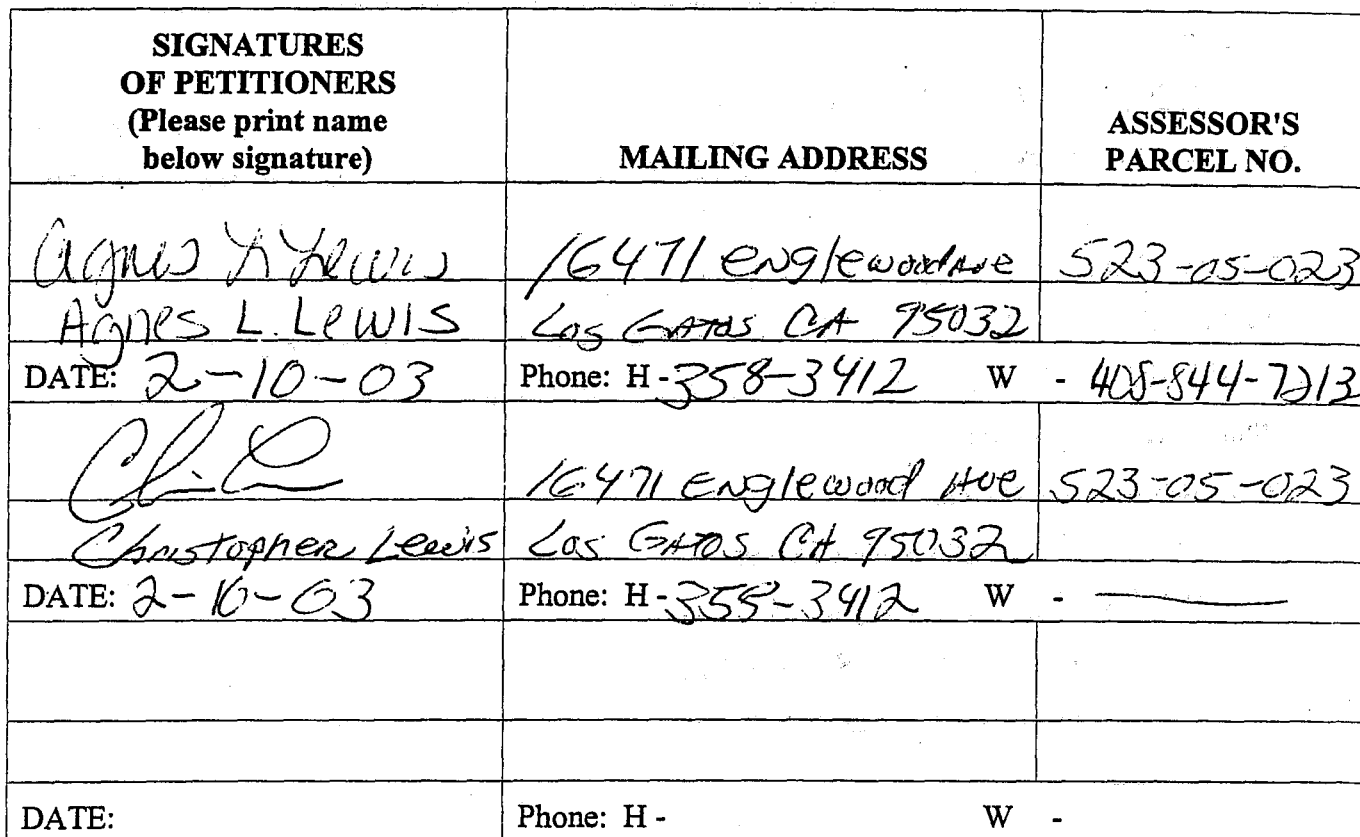 SIGNATURES
OF PETITIONERS
(Please print name
below signature)
MAILING ADDRESS
ASSESSOR'S
PARCEL NO.
Agnes L Lewis 16471 Englewood Ave 523-05-023
Agnes L. Lewis Los Gatos CA 95032
DATE: 2-10-03 Phone: H - 358-3412 W - 408-844-7213
16471 Englewood Ave 523-05-023
Christopher Lewis Los Gatos CA 95032
DATE: 2-10-03 Phone: H - 358-3412 W -
DATE: Phone: H - W -